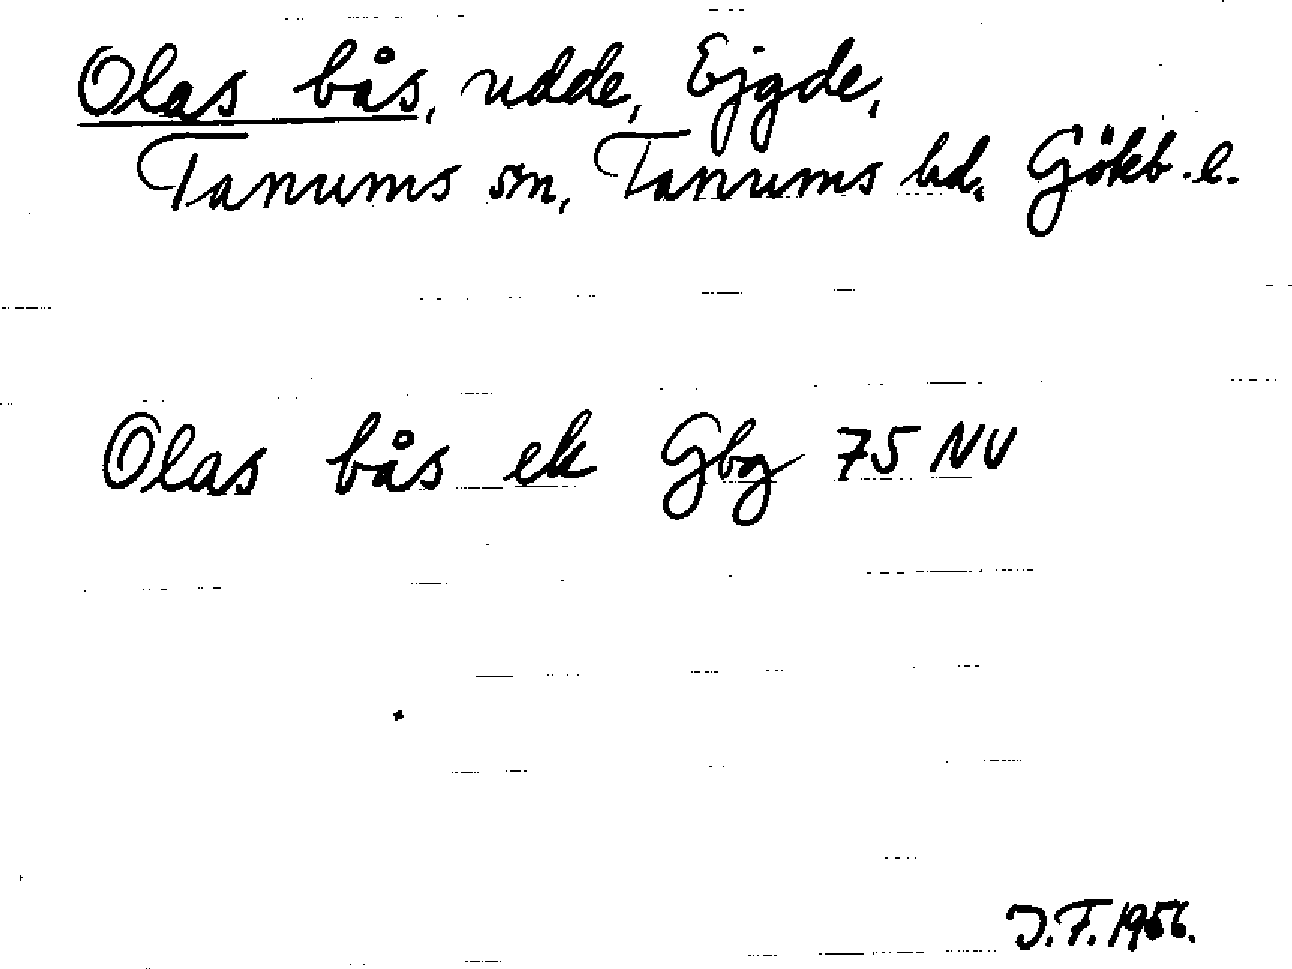 Olas bås, udde, Ejgde,
Tanums sn, Tanums hd. Gökb.l.
Olas bås ek Gbg 75 NV
J.F. 1956.